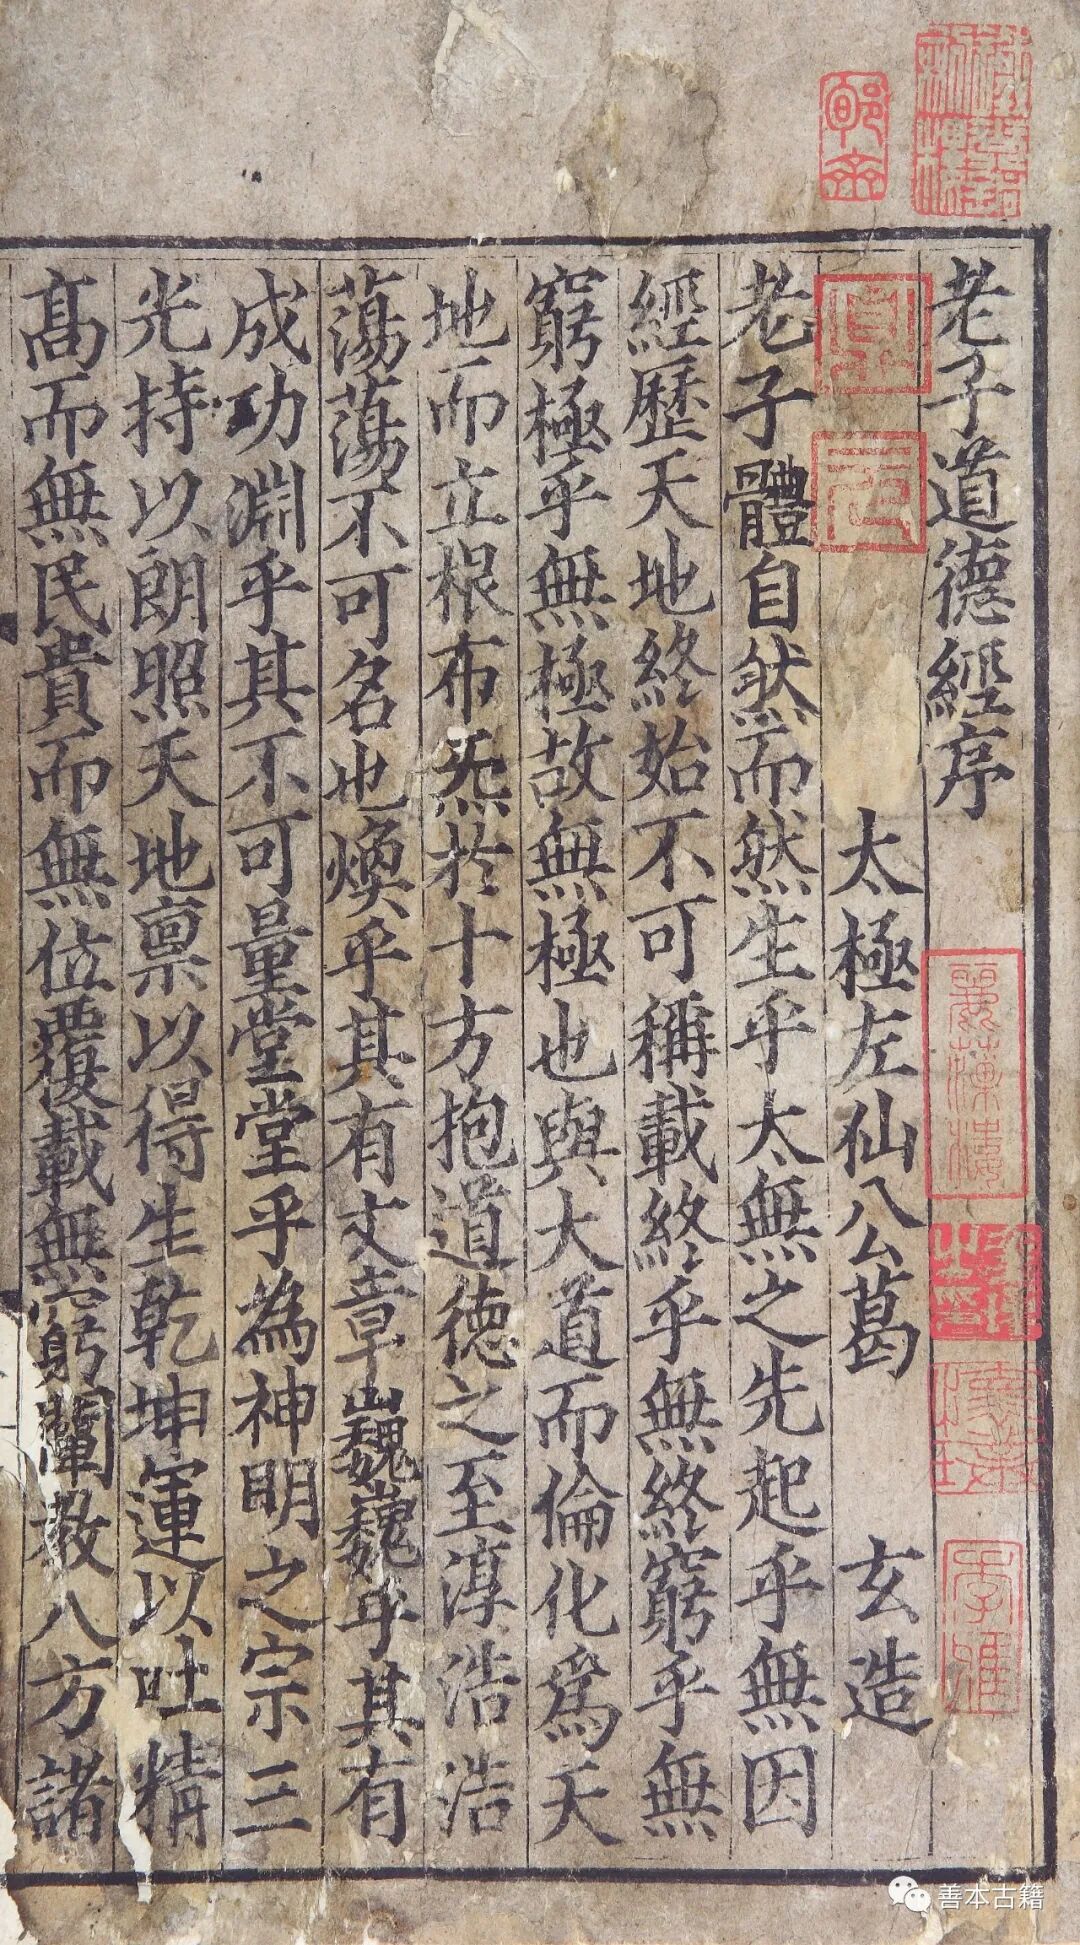 老子道德經序
太極左仙公葛玄造
老子體自然而然生乎太無之先起乎無因
經歷天地終始不可稱載終乎無終窮乎無
窮極乎無極故無極也與大道而倫化爲天
地而立根布炁於十方抱道德之至淳浩浩
蕩蕩不可名也煥乎其有文章巍巍乎其有
成功淵乎其不可量堂堂乎為神明之宗三
光持以朗照天地稟以得生乾坤運以吐精
高而無民貴而無位覆載無窮闡教八方諸
善本古籍